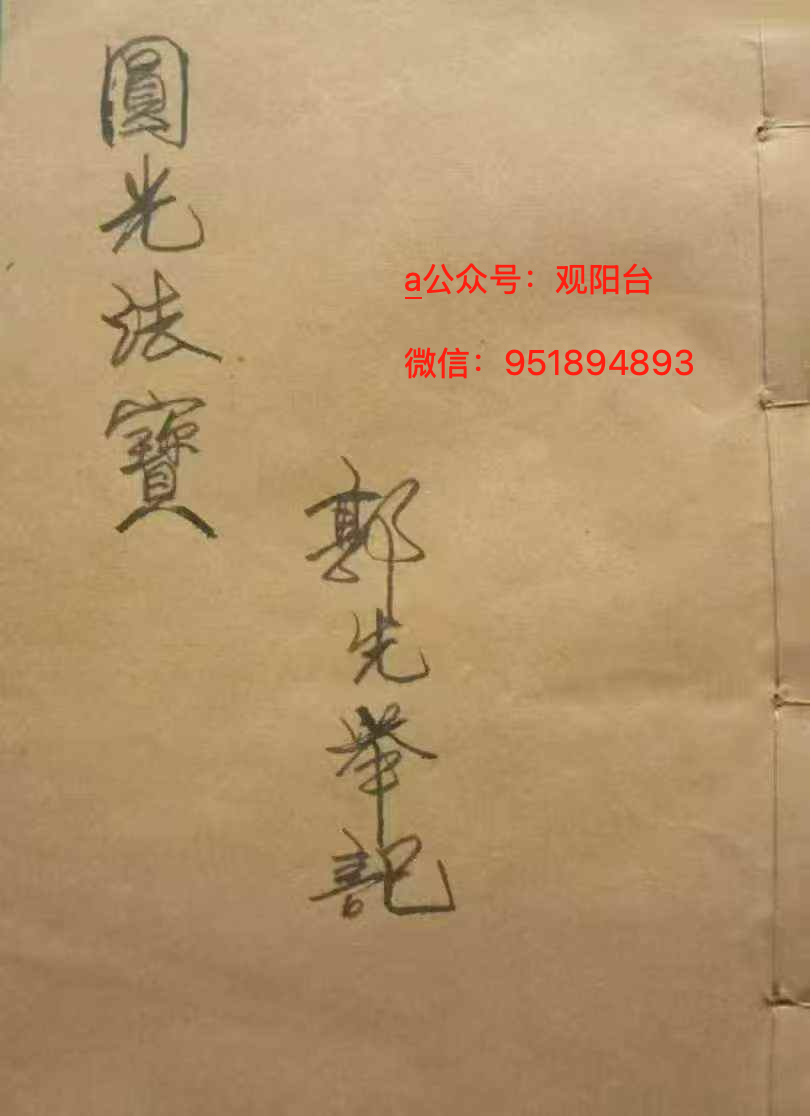 圓光法寶
郭先举記
a公众号：观阳台
微信：951894893